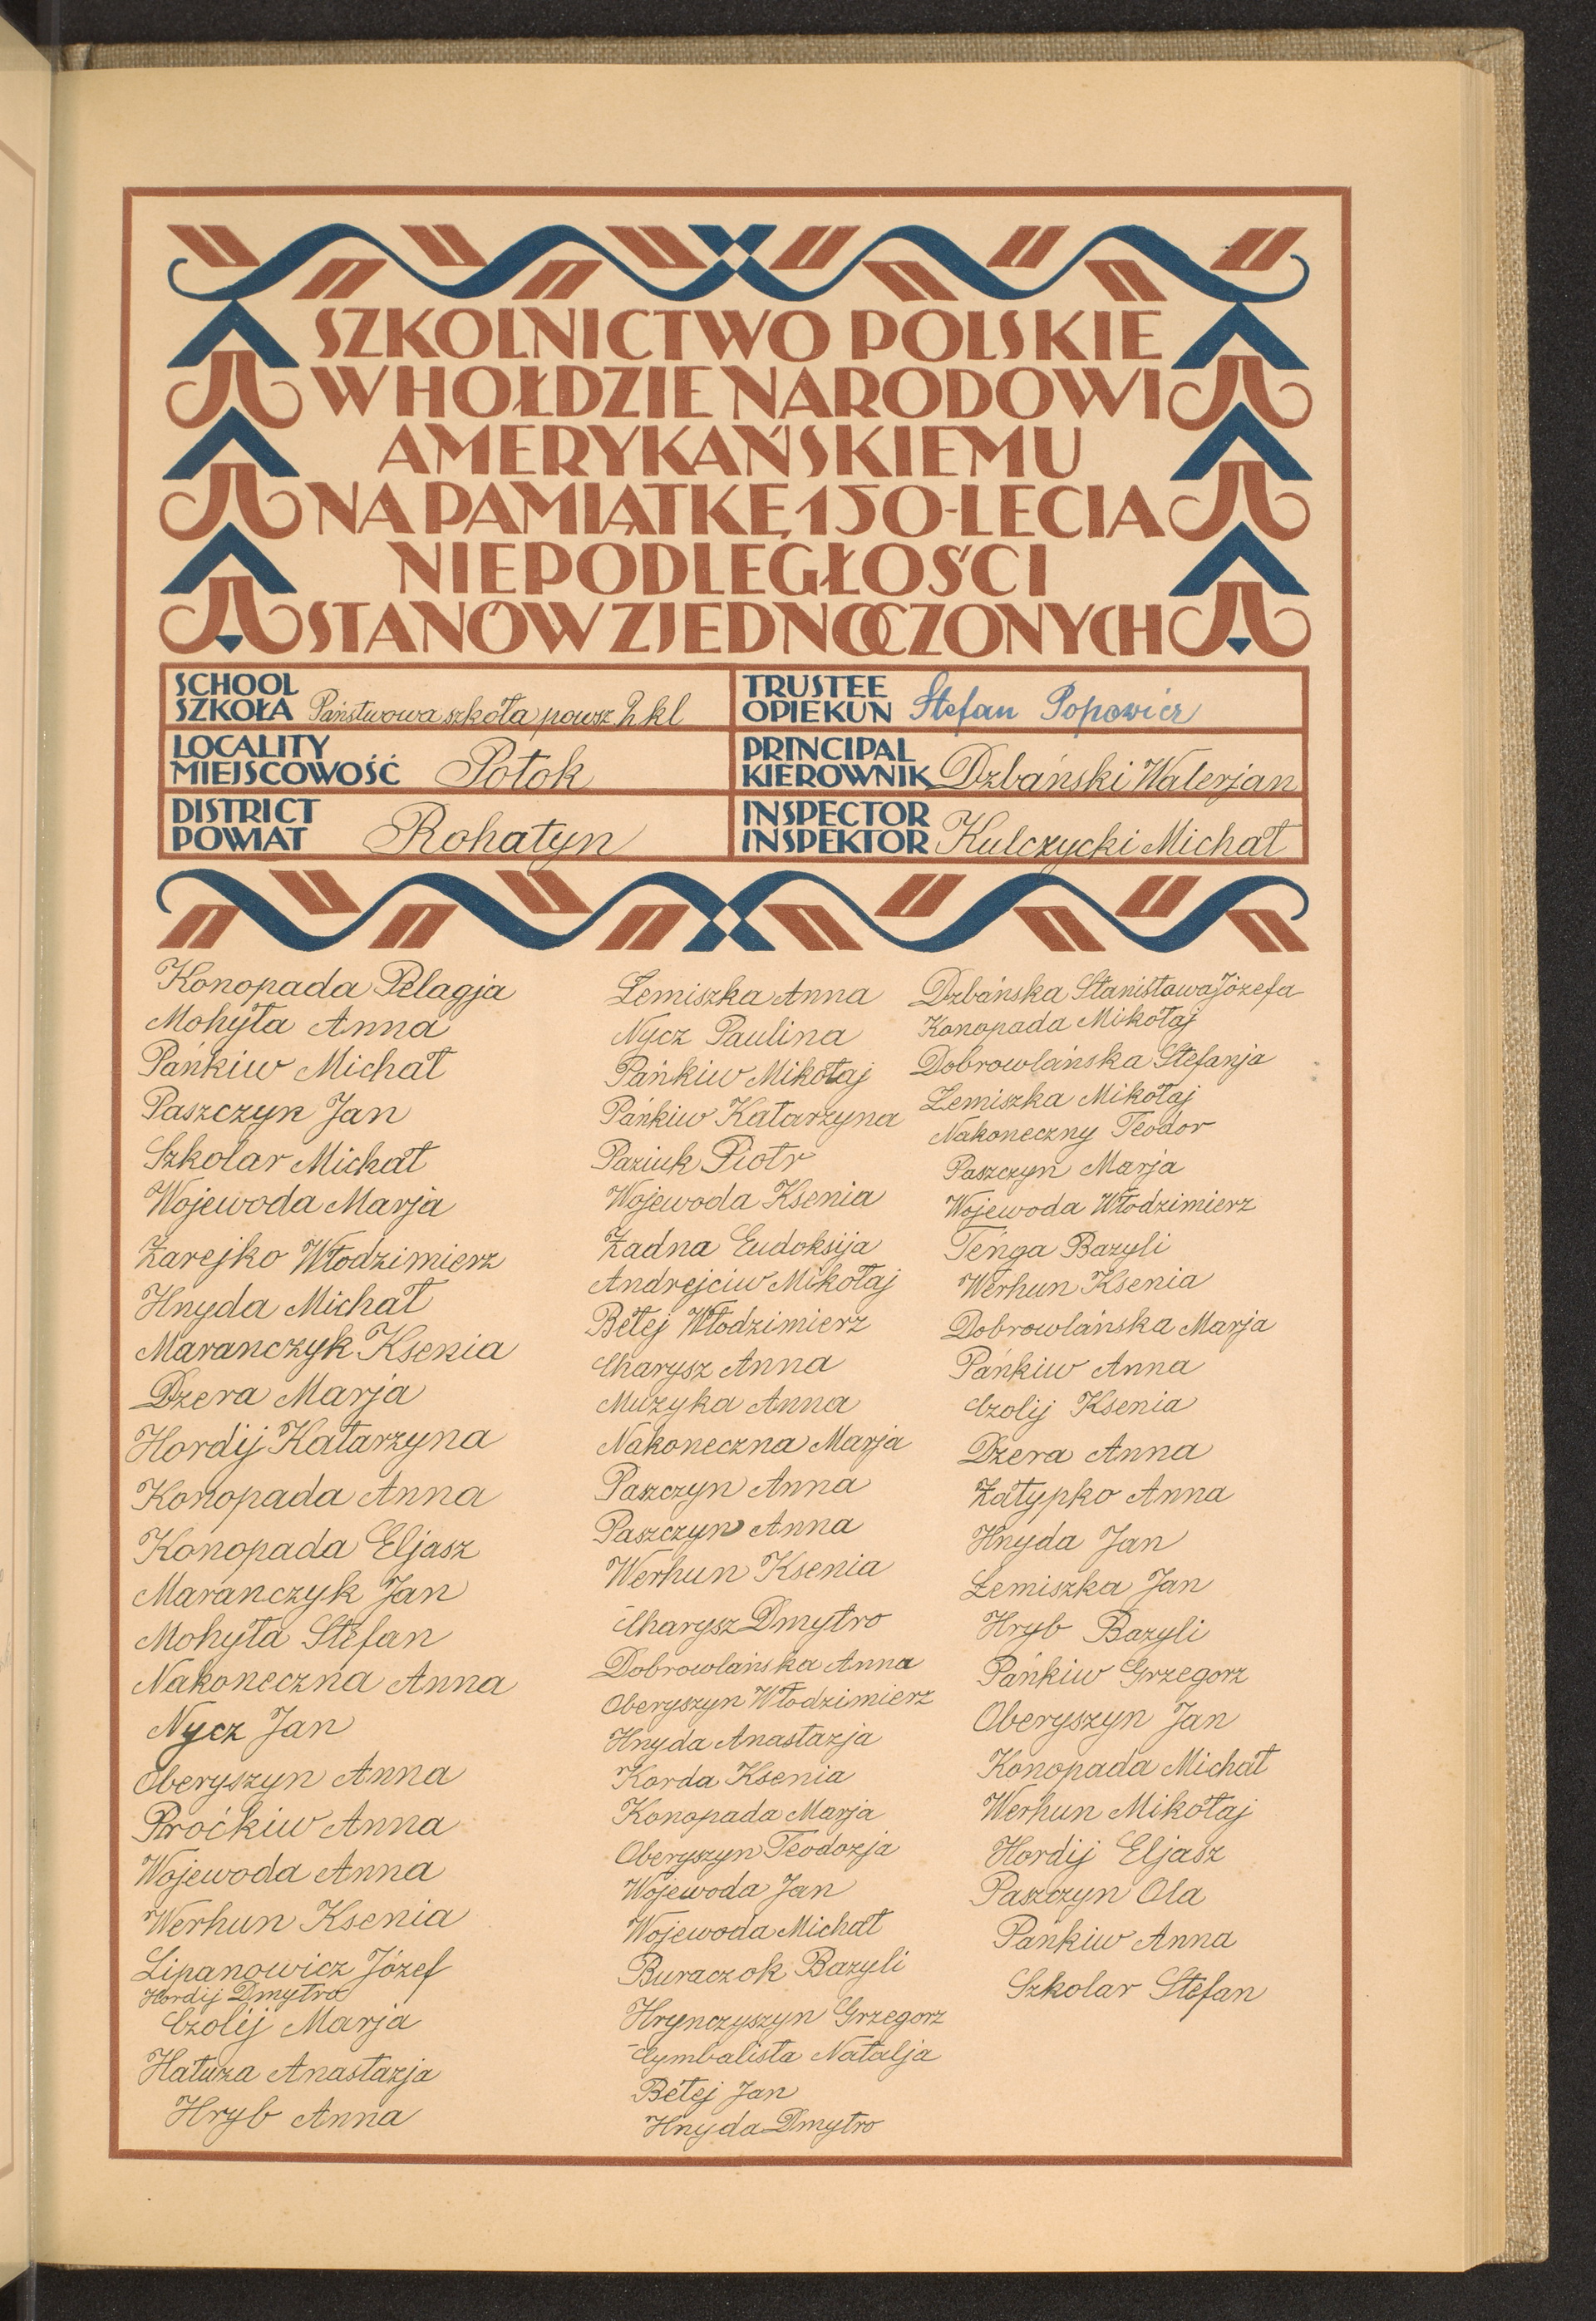 SZKOLNICTWO POLSKIE
W HOŁDZIE NARODOWI
AMERYKAŃSKIEMU
NA PAMIĄTKĘ 150-LECIA
NIEPODLEGŁOŚCI
STANÓW ZJEDNOCZONYCH
SCHOOL
SZKOŁA Państwowa szkoła powsz 2 kl
TRUSTEE
OPIEKUN Stefan Popowicz
LOCALITY
MIEJSCOWOŚĆ Potok
PRINCIPAL
KIEROWNIK Dzbański Walerjan
DISTRICT
POWIAT Rohatyn
INSPECTOR
INSPEKTOR Kulczycki Michał
Konopada Pelagja
Mohyła Anna
Pańkiw Michał
Paszczyn Jan
Szkolar Michał
Wojewoda Marja
Żarejko Włodzimierz
Hnyda Michał
Marańczyk Ksenia
Dzera Marja
Hordij Katarzyna
Konopada Anna
Konopada Eljasz
Marańczyk Jan
Mohyła Stefan
Nakoneczna Anna
Nycz Jan
Oberyszyn Anna
Proćkiw Anna
Wojewoda Anna
Werhun Ksenia
Lipanowicz Józef
Hordij Dmytro
Czolij Marja
Hałuza Anastazja
Hryb Anna
Łemiszka Anna
Nycz Paulina
Pańkiw Mikołaj
Pańkiw Katarzyna
Paziuk Piotr
Wojewoda Ksenia
Żadna Eudoksija
Andrejciw Mikołaj
Bełej Włodzimierz
Charysz Anna
Muzyka Anna
Nakoneczna Marja
Paszczyn Anna
Paszczyn Anna
Werhun Ksenia
Charysz Dmytro
Dobrowlańska Anna
Oberyszyn Włodzimierz
Hnyda Anastazja
Korda Ksenia
Konopada Marja
Oberyszyn Teodozja
Wojewoda Jan
Wojewoda Michał
Buraczok Bazyli
Hrynczyszyn Grzegorz
Cymbalista Natalja
Bełej Jan
Hnyda Dmytro
Dzbańska Stanisława Józefa
Konopada Mikołaj
Dobrowlańska Stefanja
Łemiszka Mikołaj
Nakoneczny Teodor
Paszczyn Marja
Wojewoda Włodzimierz
Teńga Bazyli
Werhun Ksenia
Dobrowlańska Marja
Pańkiw Anna
Czolij Ksenia
Dzera Anna
Załypko Anna
Hnyda Jan
Łemiszka Jan
Hryb Bazyli
Pańkiw Grzegorz
Oberyszyn Jan
Konopada Michał
Werhun Mikołaj
Hordij Eljasz
Paszczyn Ola
Pańkiw Anna
Szkolar Stefan